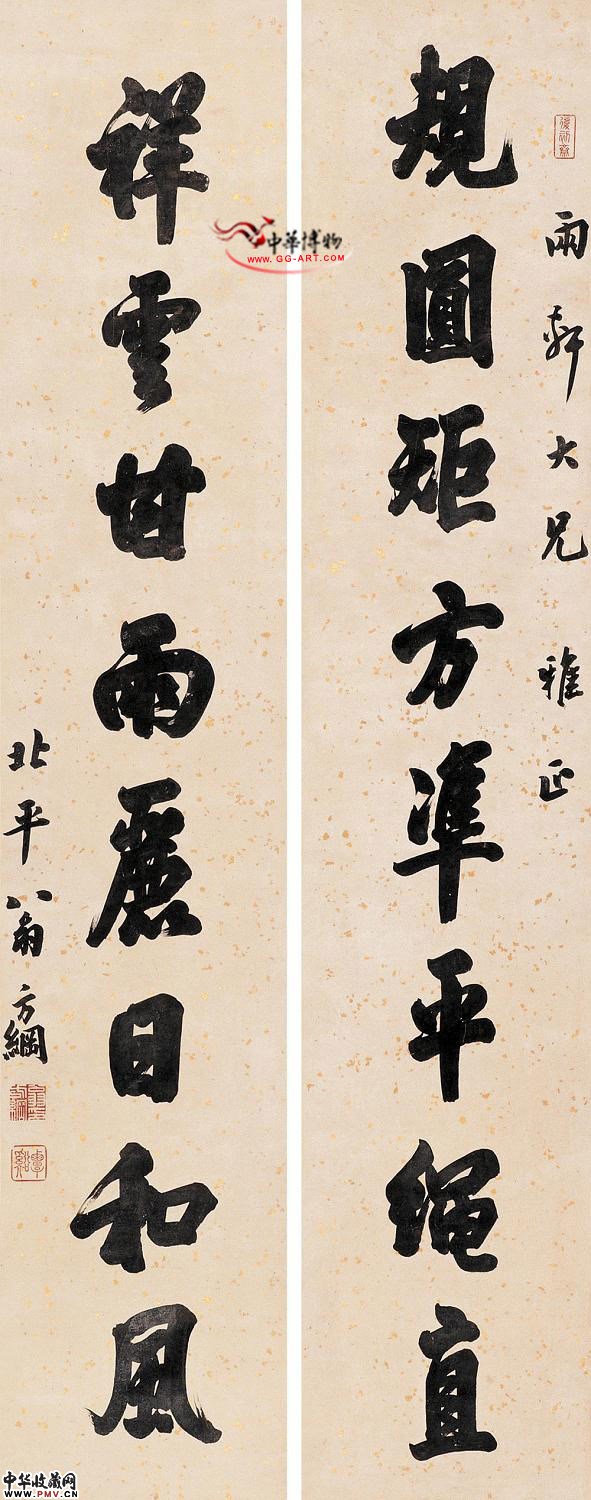 復初齋
雨軒大兄雅正
規圓矩方準平繩直
祥雲甘雨麗日和風
北平翁方綱
翁方綱
覃谿
中華博物
www.GG-ART.com
中华收藏网
www.PMV.CN